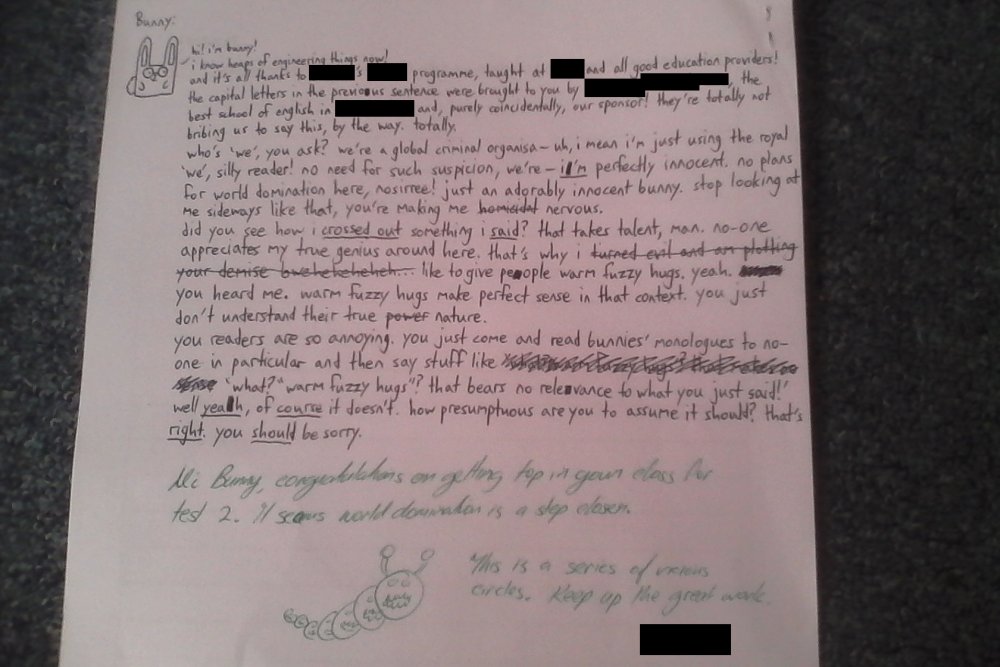 Bunny:
hi! i'm bunny!
i know heaps of engineering things now!
and it's all thanks to 's programme, taught at and all good education providers!
the capital letters in the previous sentence were brought to you by , the
best school of english in and, purely coincidentally, our sponsor! they're totally not
bribing us to say this, by the way. totally.
who's 'we', you ask? we're a global criminal organisa- uh, i mean i'm just using the royal
'we', silly reader! no need for such suspicion, we're - i'm perfectly innocent. no plans
for world domination here, nosirree! just an adorably innocent bunny. stop looking at
me sideways like that, you're making me homicidal nervous.
did you see how i crossed out something i said? that takes talent, man. no-one
appreciates my true genius around here. that's why i turned evil and am plotting
your demise bweheheheheh... like to give people warm fuzzy hugs. yeah.
you heard me. warm fuzzy hugs make perfect sense in that context. you just
don't understand their true power nature.
you readers are so annoying. you just come and read bunnies' monologues to no-
one in particular and then say stuff like
'what? "warm fuzzy hugs"? that bears no relevance to what you just said!'
well yeah, of course it doesn't. how presumptuous are you to assume it should? that's
right. you should be sorry.
Hi Bunny, congratulations on getting top in your class for
test 2. It seems world domination is a step closer.
This is a series of various
circles. Keep up the great work.